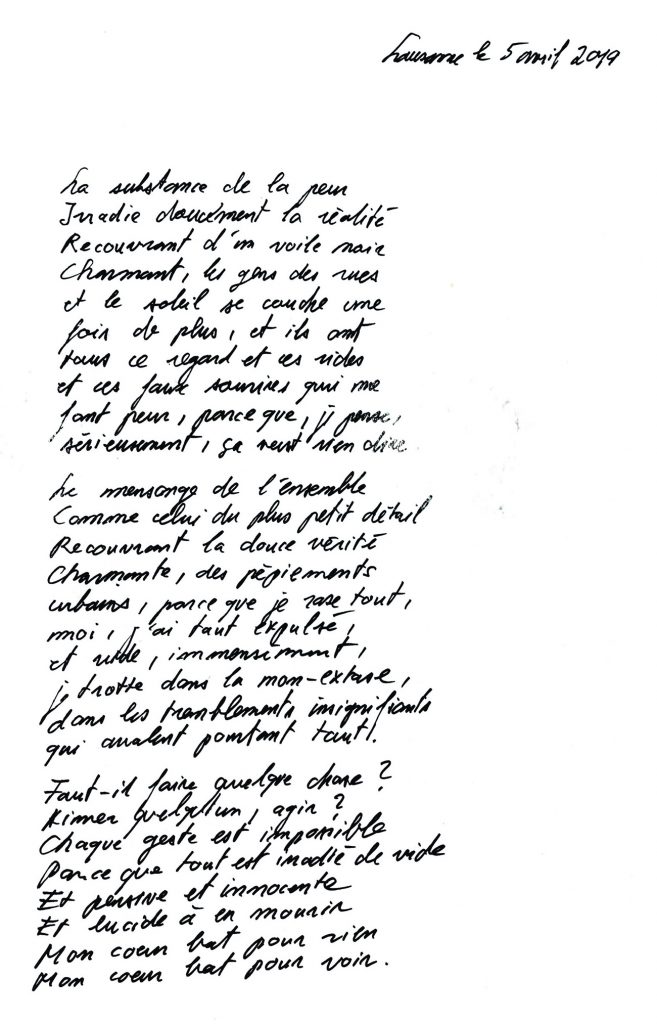 Lausanne le 5 avril 2019
La substance de la peur
Irradie doucement la réalité
Recouvrant d'un voile noir
Charmant, les gens des rues
et le soleil se couche une
fois de plus, et ils ont
tous ce regard et ces rides
et ces faux sourires qui me
font peur, parce que, j'y pense,
sérieusement, ça veut rien dire
Le mensonge de l'ensemble
Comme celui du plus petit détail
Recouvrant la douce vérité
Charmante, des pépiements
urbains, parce que je rase tout,
moi, j'ai tout expulsé,
et vide, immensément,
je trotte dans la non-extase,
dans les tremblements insignifiants
qui avalent pourtant tout.
Faut-il faire quelque chose ?
Aimer quelqu'un, agir ?
Chaque geste est impossible
Parce que tout est irradié de vide
Et pensive et innocente
Et lucide à en mourir
Mon coeur bat pour rien
Mon coeur bat pour voir.